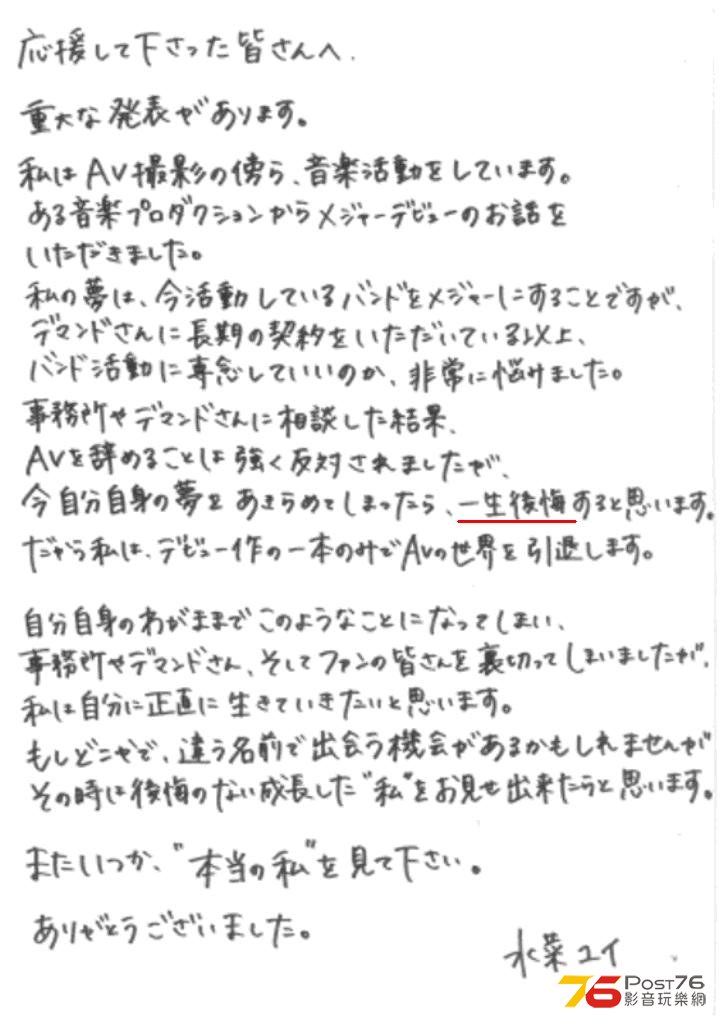 応援して下さった皆さんへ.
重大な発表があります。
私はAV撮影の傍ら、音楽活動をしています。
ある音楽プロダクションからメジャーデビューのお話を
いただきました。
私の夢は、今活動しているバンドをメジャーにすることですが、
デマンドさんに長期の契約をいただいている以上、
バンド活動に専念していいのか、非常に悩みました。
事務所やデマンドさんに相談した結果、
AVを辞めることは強く反対されましたが、
今自分自身の夢をあきらめてしまったら、一生後悔すると思います。
だから私は、デビュー作の一本のみでAVの世界を引退します。
自分自身のわがままでこのようなことになってしまい、
事務所やデマンドさん、そしてファンの皆さんを裏切ってしまいましたが、
私は自分に正直に生きていきたいと思います。
もしどこかで、違う名前で出会う機会があるかもしれませんが
その時は後悔のない成長した"私"をお見せ出来たらと思います。
またいつか、"本当の私"を見て下さい。
ありがとうございました。
水菜ユイ
76 POST76
影音玩樂網